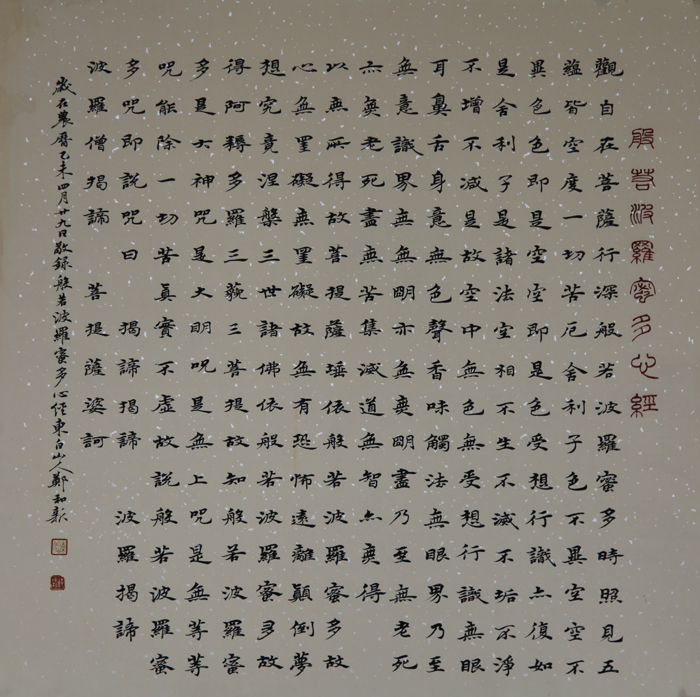 般若波羅蜜多心經
觀自在菩薩行深般若波羅蜜多時照見五
蘊皆空度一切苦厄舍利子色不異空空不
異色色即是空空即是色受想行識亦復如
是舍利子是諸法空相不生不滅不垢不淨
不增不減是故空中無色無受想行識無眼
耳鼻舌身意無色聲香味觸法無眼界乃至
無意識界無無明亦無無明盡乃至無老死
亦無老死盡無苦集滅道無智亦無得
以無所得故菩提薩埵依般若波羅蜜多故
心無罣礙無罣礙故無有恐怖遠離顛倒夢
想究竟涅槃三世諸佛依般若波羅蜜多故
得阿耨多羅三藐三菩提故知般若波羅蜜
多是大神咒是大明咒是無上咒是無等等
咒能除一切苦真實不虛故說般若波羅蜜
多咒即說咒曰 揭諦揭諦 波羅揭諦
波羅僧揭諦 菩提薩婆訶
歲在農曆乙未四月廿九日敬録般若波羅蜜多心經東白山人鄭和新